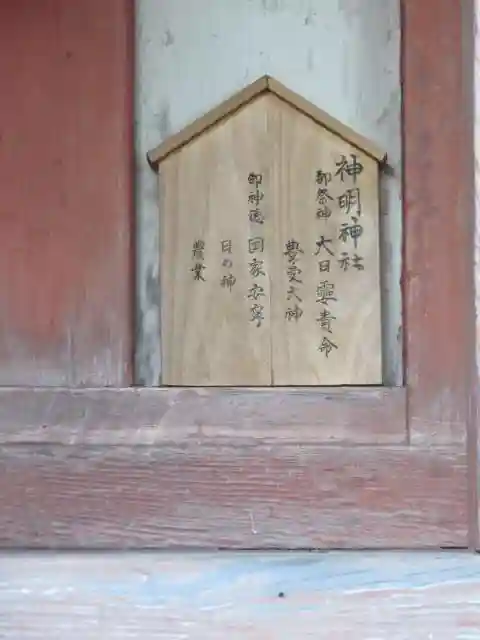 神明神社
御祭神 大日孁貴命
豊受大神
御神徳 国家安寧
日の神
農業